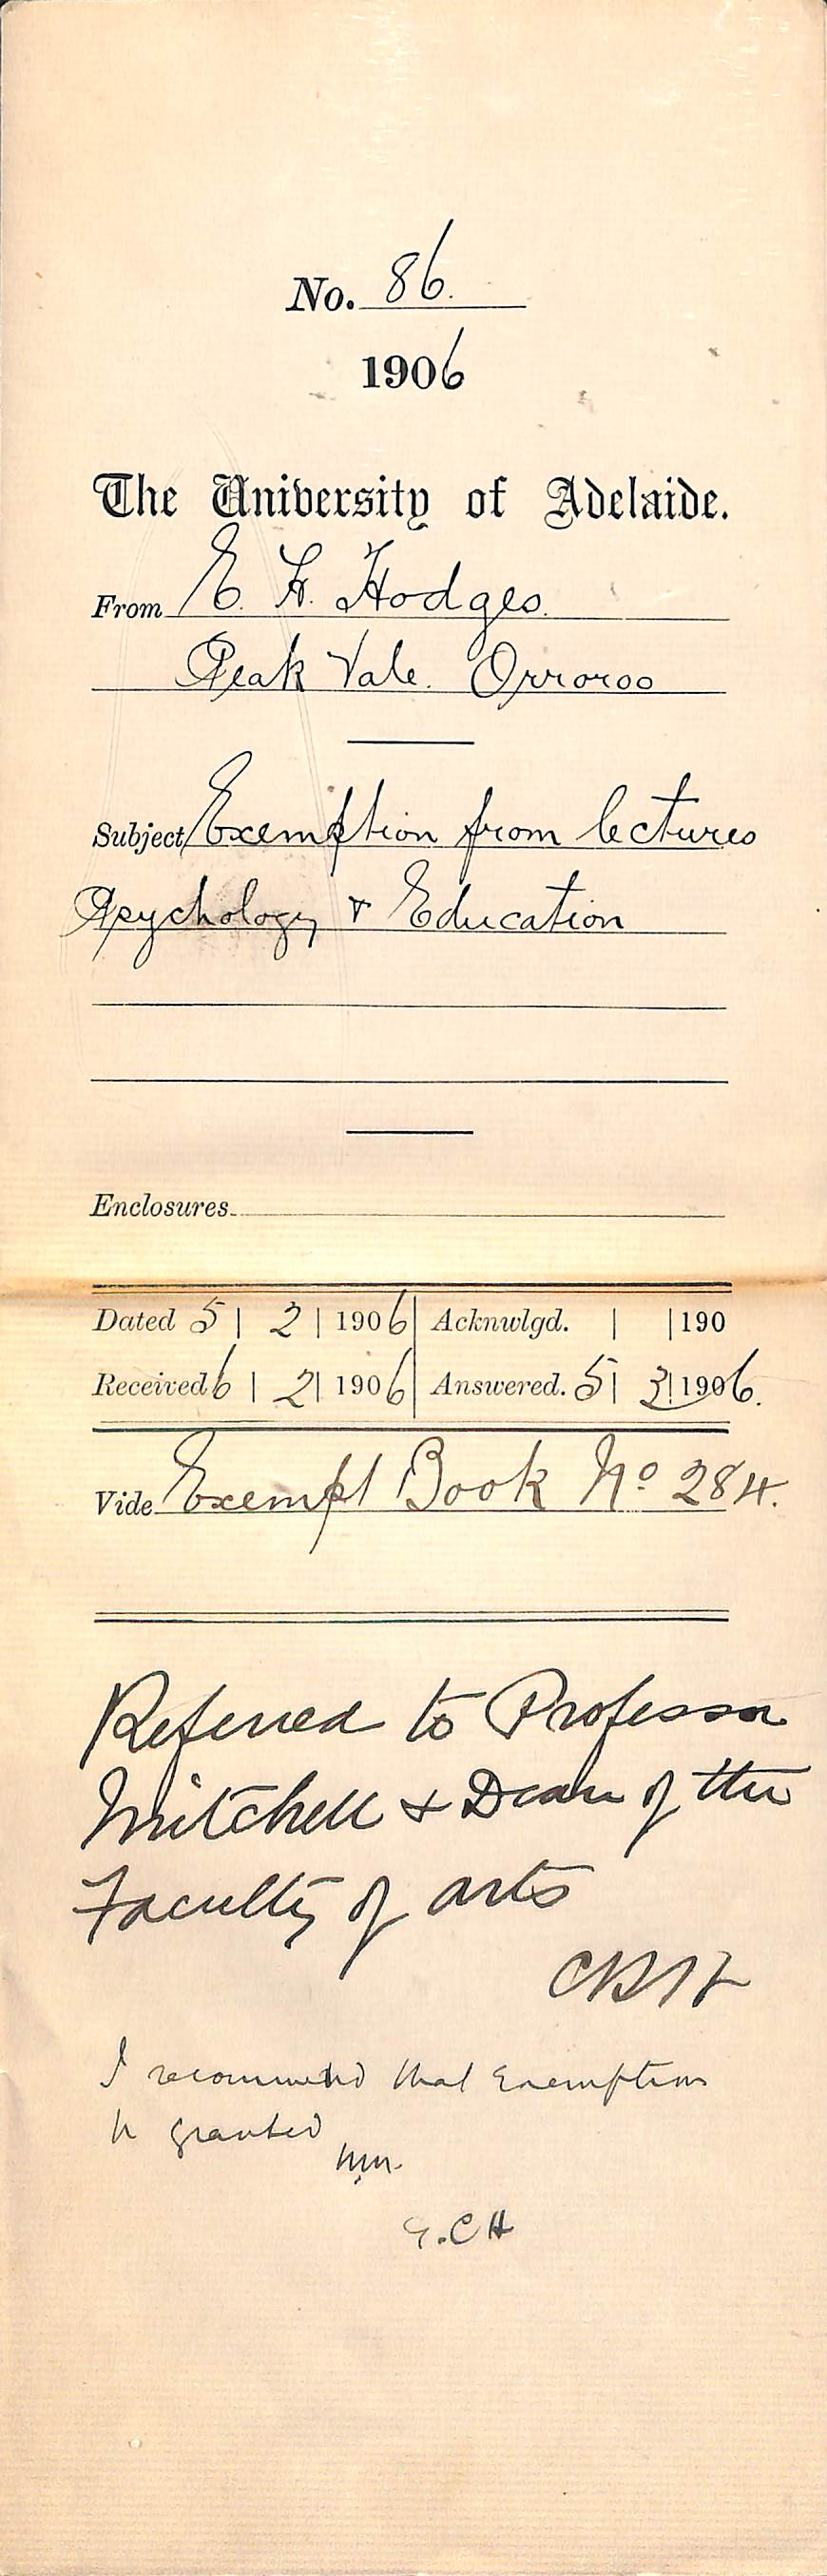 No. 86.
1906
The University of Adelaide.
From E. H. Hodges.
Peak Vale. Orroroo
Subject Exemption from lectures
Psychology & Education
Enclosures
Dated 5 | 2 | 1906 | Acknwlgd. | | 190
Received 6 | 2 | 1906 | Answered. 5 | 3 | 1906.
Vide Exempt Book No 284.
Referred to Professor
Mitchell & Dean of the
Faculty of Arts
I recommend that exemption
be granted
W.M.
E.CH